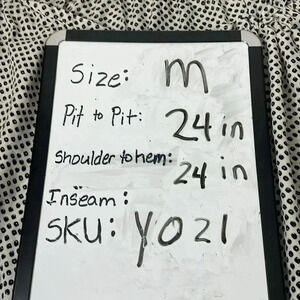 Size: M
Pit to Pit: 24 in
Shoulder to hem: 24 in
Inseam:
SKU: Y021